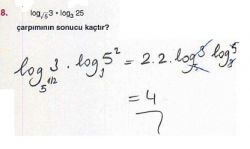 8. log√5 3 • log3 25
çarpımının sonucu kaçtır?
log5^1/2 3 . log3 5^2 = 2.2. log5 3 log3 5
= 4